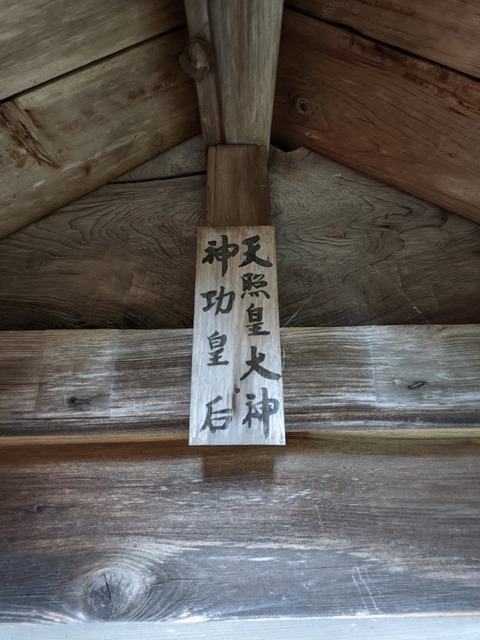 天照皇大神
神功皇后